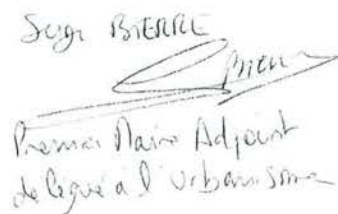 Serge BIERRE
Premier Maire Adjoint
délégué à l'urbanisme